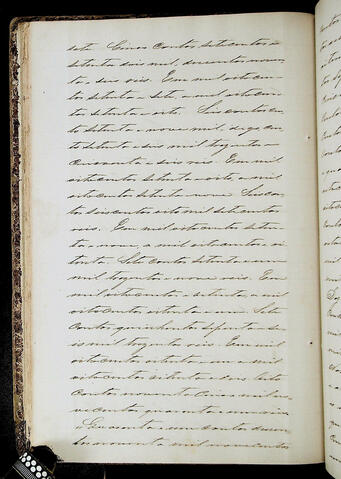 sete Cinco contos sete centos e
setenta e dois mil, duzentos noven
ta e seis reis. Em mil oito cen
tos setenta e sete, a mil oito cen
tos setenta e oito. Seis contos cen
to setenta e nove mil,
to setenta e seis mil trezentos e
cincoenta e seis reis. Em mil
oito centos setenta e oito, a mil
oito centos setenta e nove Seis con
tos seis centos oito mil sete centos
reis. Em mil oito centos seten
ta e nove, a mil oito centos e oi
tenta. Sete contos setenta e um
mil trezentos e nove reis. Em
mil oito centos e oitenta, a mil
oito centos oitenta e um Sete
contos quinhentos e se
is mil trezentos reis. Em mil
oito centos oitenta e um a mil
oito centos oitenta e dous Oito
contos noventa e cinco mil no
ve centos quarenta e um reis
e Quarenta e um contos duzen
tos noventa mil nove centos